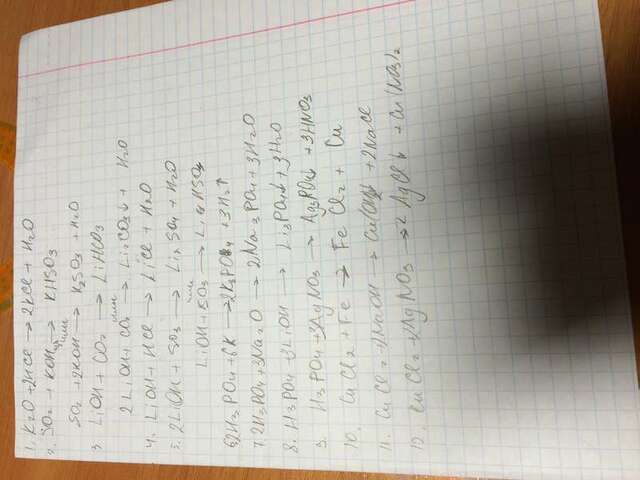 1. K2O + 2HCl → 2KCl + H2O
2. SO2 + KOH изб → KHSO3
или
SO2 + 2KOH → K2SO3 + H2O
3. LiOH + CO2 → LiHCO3
или
2LiOH + CO2 → Li2CO3↓ + H2O
4. LiOH + HCl → LiCl + H2O
5. 2LiOH + SO3 → Li2SO4 + H2O
или
LiOH + SO3 → LiHSO4
6. 2H3PO4 + 6K → 2K3PO4 + 3H2↑
7. 2H3PO4 + 3Na2O → 2Na3PO4 + 3H2O
8. H3PO4 + 3LiOH → Li3PO4↓ + 3H2O
9. H3PO4 + 3AgNO3 → Ag3PO4↓ + 3HNO3
10. CuCl2 + Fe → FeCl2 + Cu
11. CuCl2 + 2NaOH → Cu(OH)2↓ + 2NaCl
12. CuCl2 + 2AgNO3 → 2AgCl↓ + Cu(NO3)2